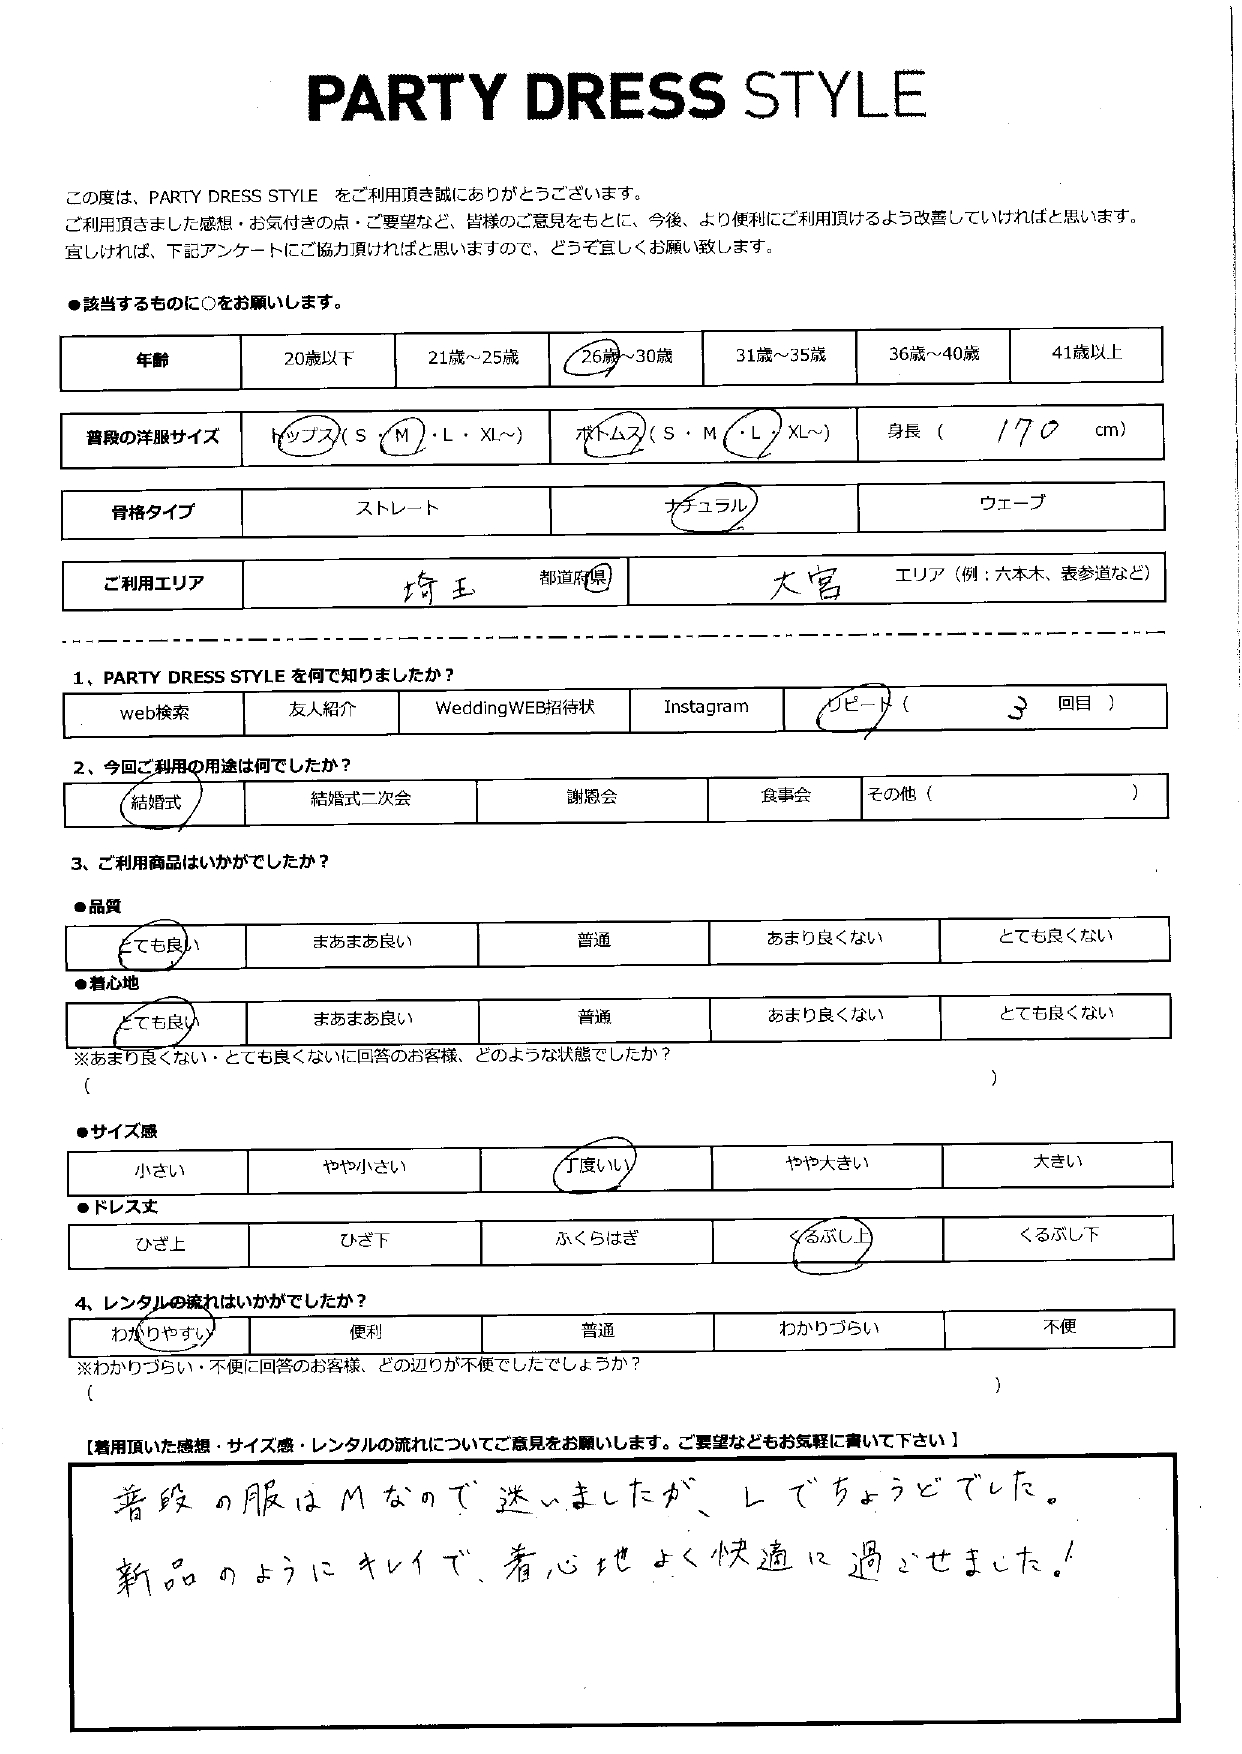 PARTY DRESS STYLE
この度は、PARTY DRESS STYLE　をご利用頂き誠にありがとうございます。
ご利用頂きました感想・お気付きの点・ご要望など、皆様のご意見をもとに、今後、より便利にご利用頂けるよう改善していければと思います。
宜しければ、下記アンケートにご協力頂ければと思いますので、どうぞ宜しくお願い致します。
●該当するものに○をお願いします。
年齢 20歳以下 21歳～25歳 26歳～30歳 31歳～35歳 36歳～40歳 41歳以上
普段の洋服サイズ トップス( S ・ M ・L ・ XL～) ボトムス( S ・ M ・L・ XL～) 身長 ( 170 cm)
骨格タイプ ストレート ナチュラル ウェーブ
ご利用エリア 埼玉 都道府県 大宮 エリア（例：六本木、表参道など）
1、PARTY DRESS STYLE を何で知りましたか？
web検索 友人紹介 WeddingWEB招待状 Instagram リピート ( 3 回目 )
2、今回ご利用の用途は何でしたか？
結婚式 結婚式二次会 謝恩会 食事会 その他 ( )
3、ご利用商品はいかがでしたか？
●品質
とても良い まあまあ良い 普通 あまり良くない とても良くない
●着心地
とても良い まあまあ良い 普通 あまり良くない とても良くない
※あまり良くない・とても良くないに回答のお客様、どのような状態でしたか？
( )
●サイズ感
小さい やや小さい 丁度いい やや大きい 大きい
●ドレス丈
ひざ上 ひざ下 ふくらはぎ くるぶし上 くるぶし下
4、レンタルの流れはいかがでしたか？
わかりやすい 便利 普通 わかりづらい 不便
※わかりづらい・不便に回答のお客様、どの辺りが不便でしたでしょうか？
( )
【着用頂いた感想・サイズ感・レンタルの流れについてご意見をお願いします。ご要望などもお気軽に書いて下さい 】
普段の服はMなので迷いましたが、Lでちょうどでした。
新品のようにキレイで、着心地よく快適に過ごせました！